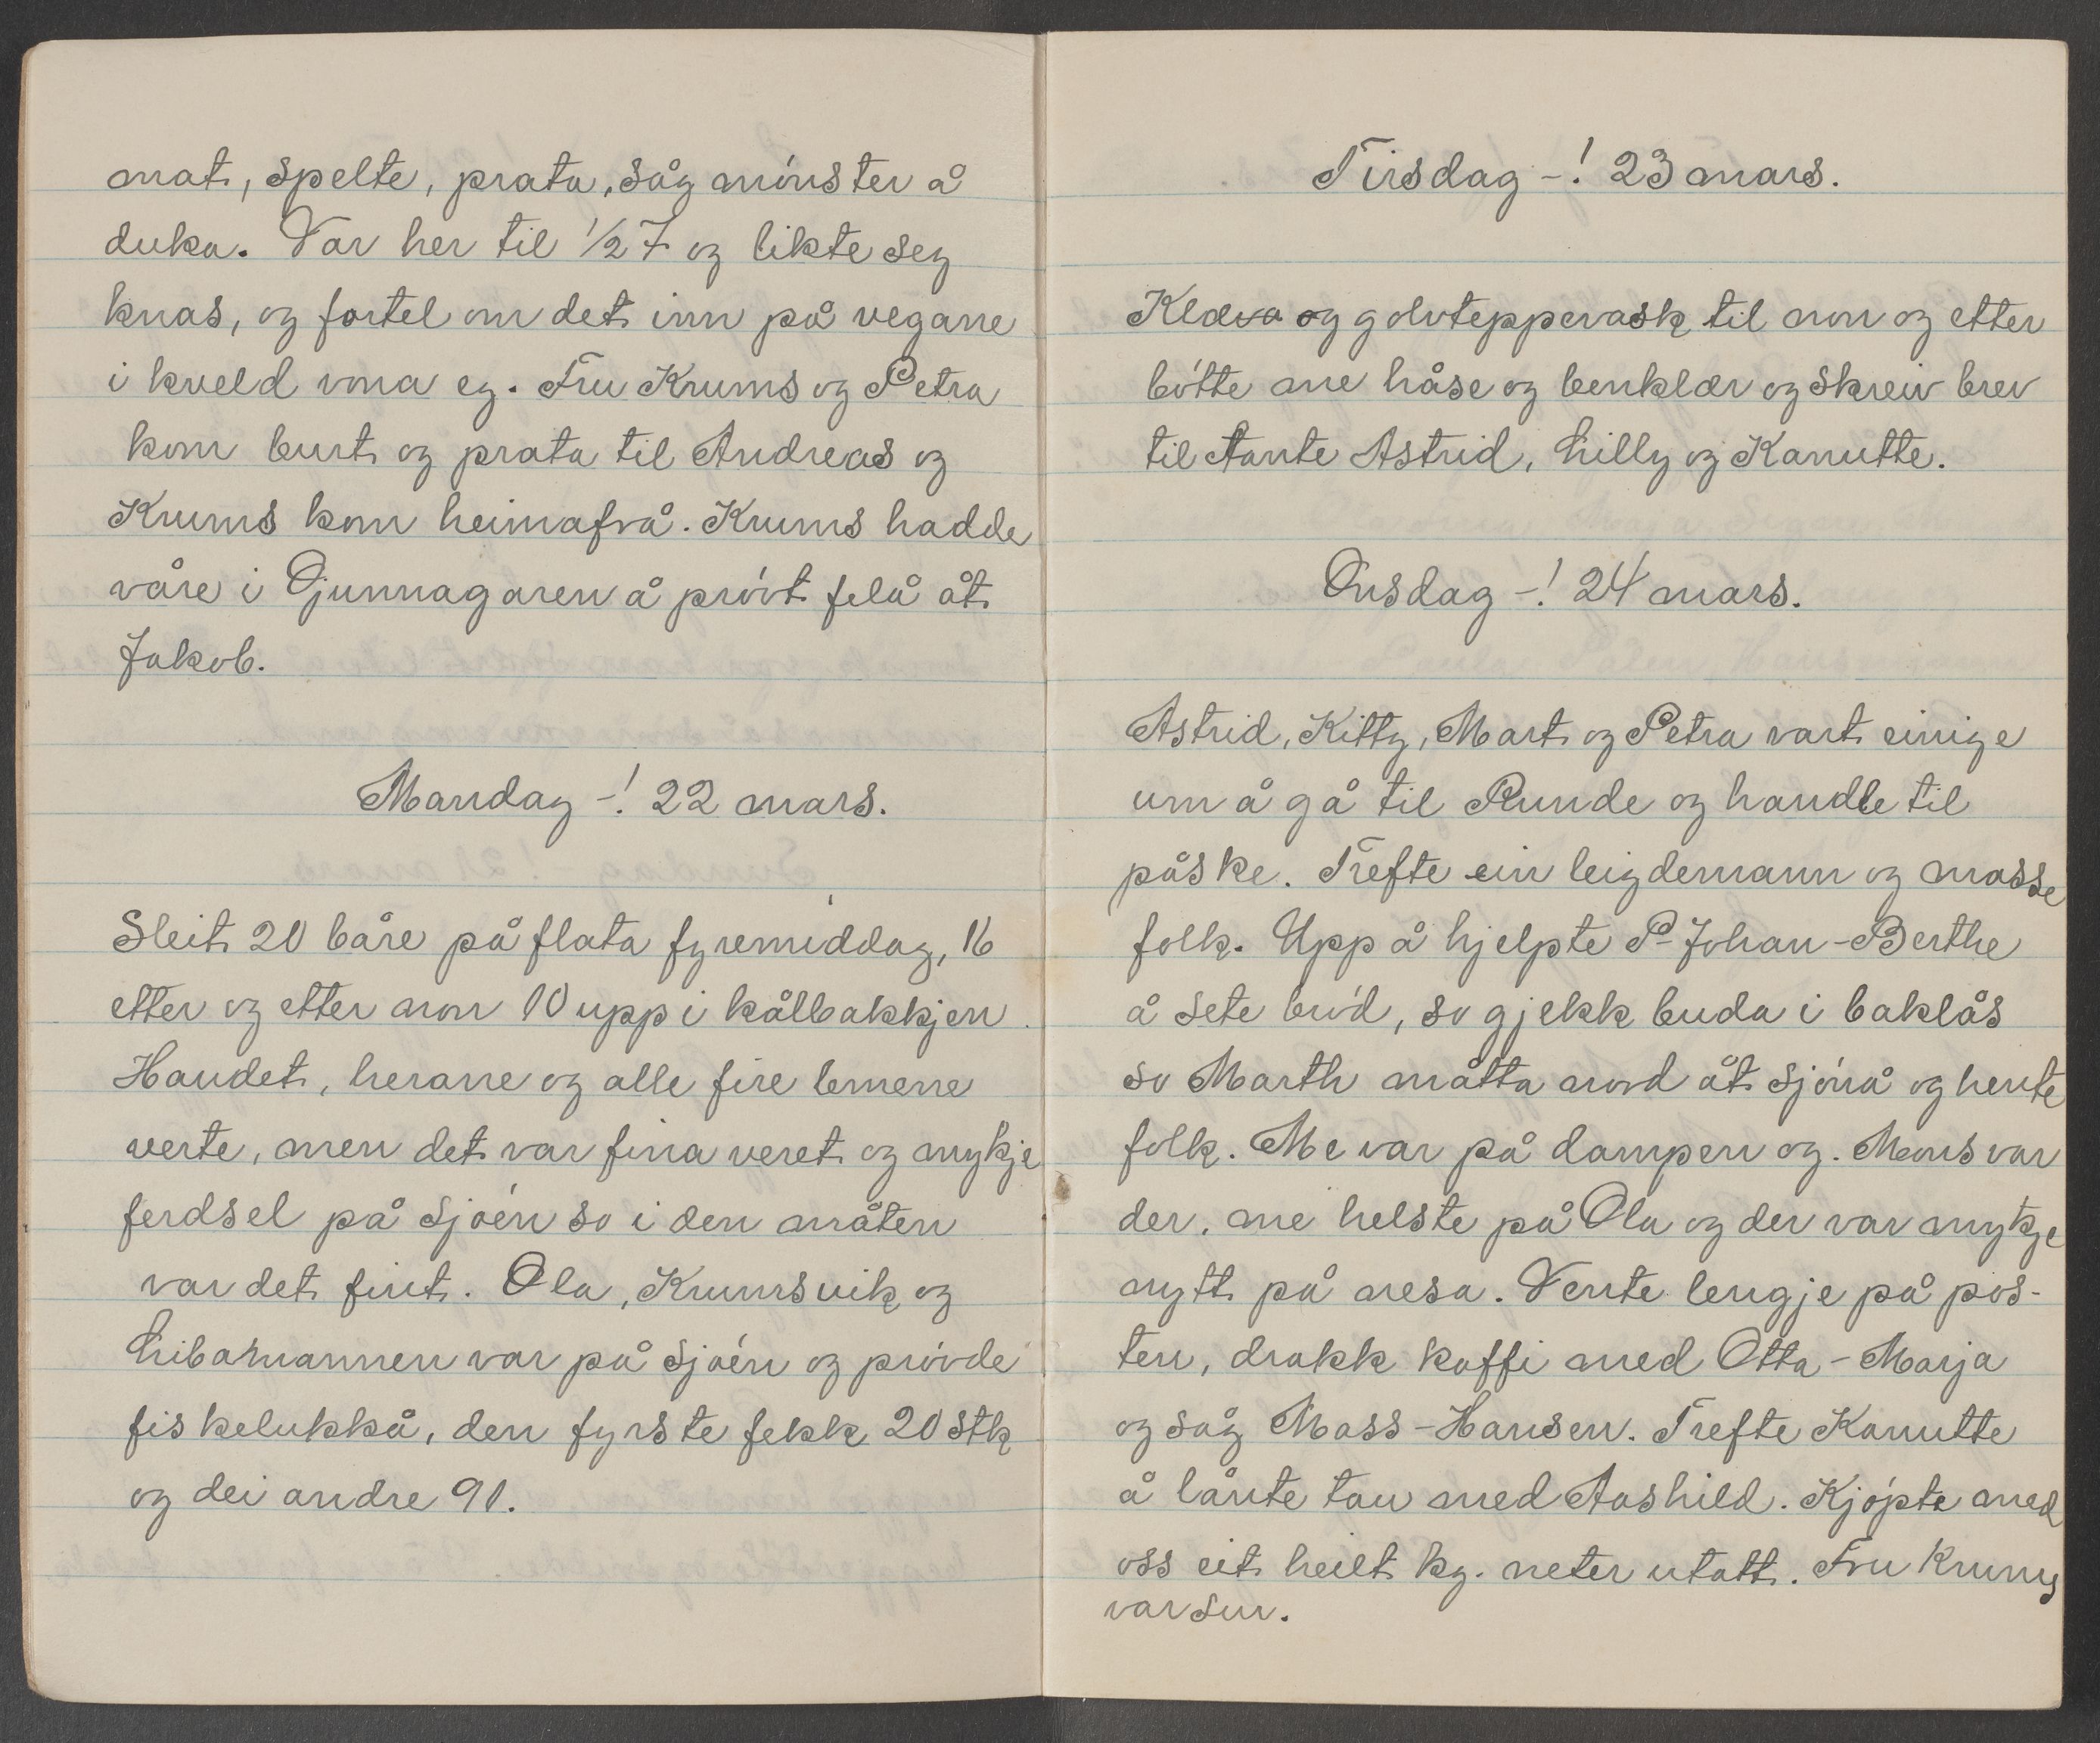 mat, spelte, prata, såg mónster å
duka. Var her til 1/2 7 og likte seg
knas, og fortel om det inn på vegane
i kveld vona eg. Fru Krums og Petra
kom burt og prata til Andreas og
Krums kom heimafrå. Krums hadde
våre i Gjunnagaren å próvt felå åt
Jakob.
Mandag -! 22 mars.
Sleit 20 båre på flata fyremiddag, 16
etter og etter non 10 upp i kålbakkjen.
Haudet, herane og alle fire lemene
verte, men det var fina veret og mykje
ferdsel på sjóen so i den måten
var det fint. Ola, Krumsvik og
Libarmannen var på sjóen og próvde
fiskelukkå, den fyrste fekk 20 stk
og dei andre 90.
Tirsdag -! 23 mars.
Kleva og golvteppevask til non og etter
bótte me håse og benklær og skreiv brev
til Tante Astrid, Lilly og Kanutte.
Onsdag -! 24 mars.
Astrid, Kitty, Mart og Petra vart einige
um å gå til Runde og handle til
påske. Trefte ein leigdemann og masse
folk. Upp å hjelpte P-Johan-Berthe
å sete bród, so gjekk buda i baklås
so Marth måtta nord åt sjóná og hente
folk. Me var på dampen og. Mons var
der, me helste på Ola og der var mykje
nytt på nesa. Vente lengje på pos-
ten, drakk kaffi med Otta-Marja
og såg Mass-Hansen. Trefte Kanutte
å lånte tau med Aashild. Kjópte med
oss eit heilt kg. neter utatt. Fru Krums
var sur.